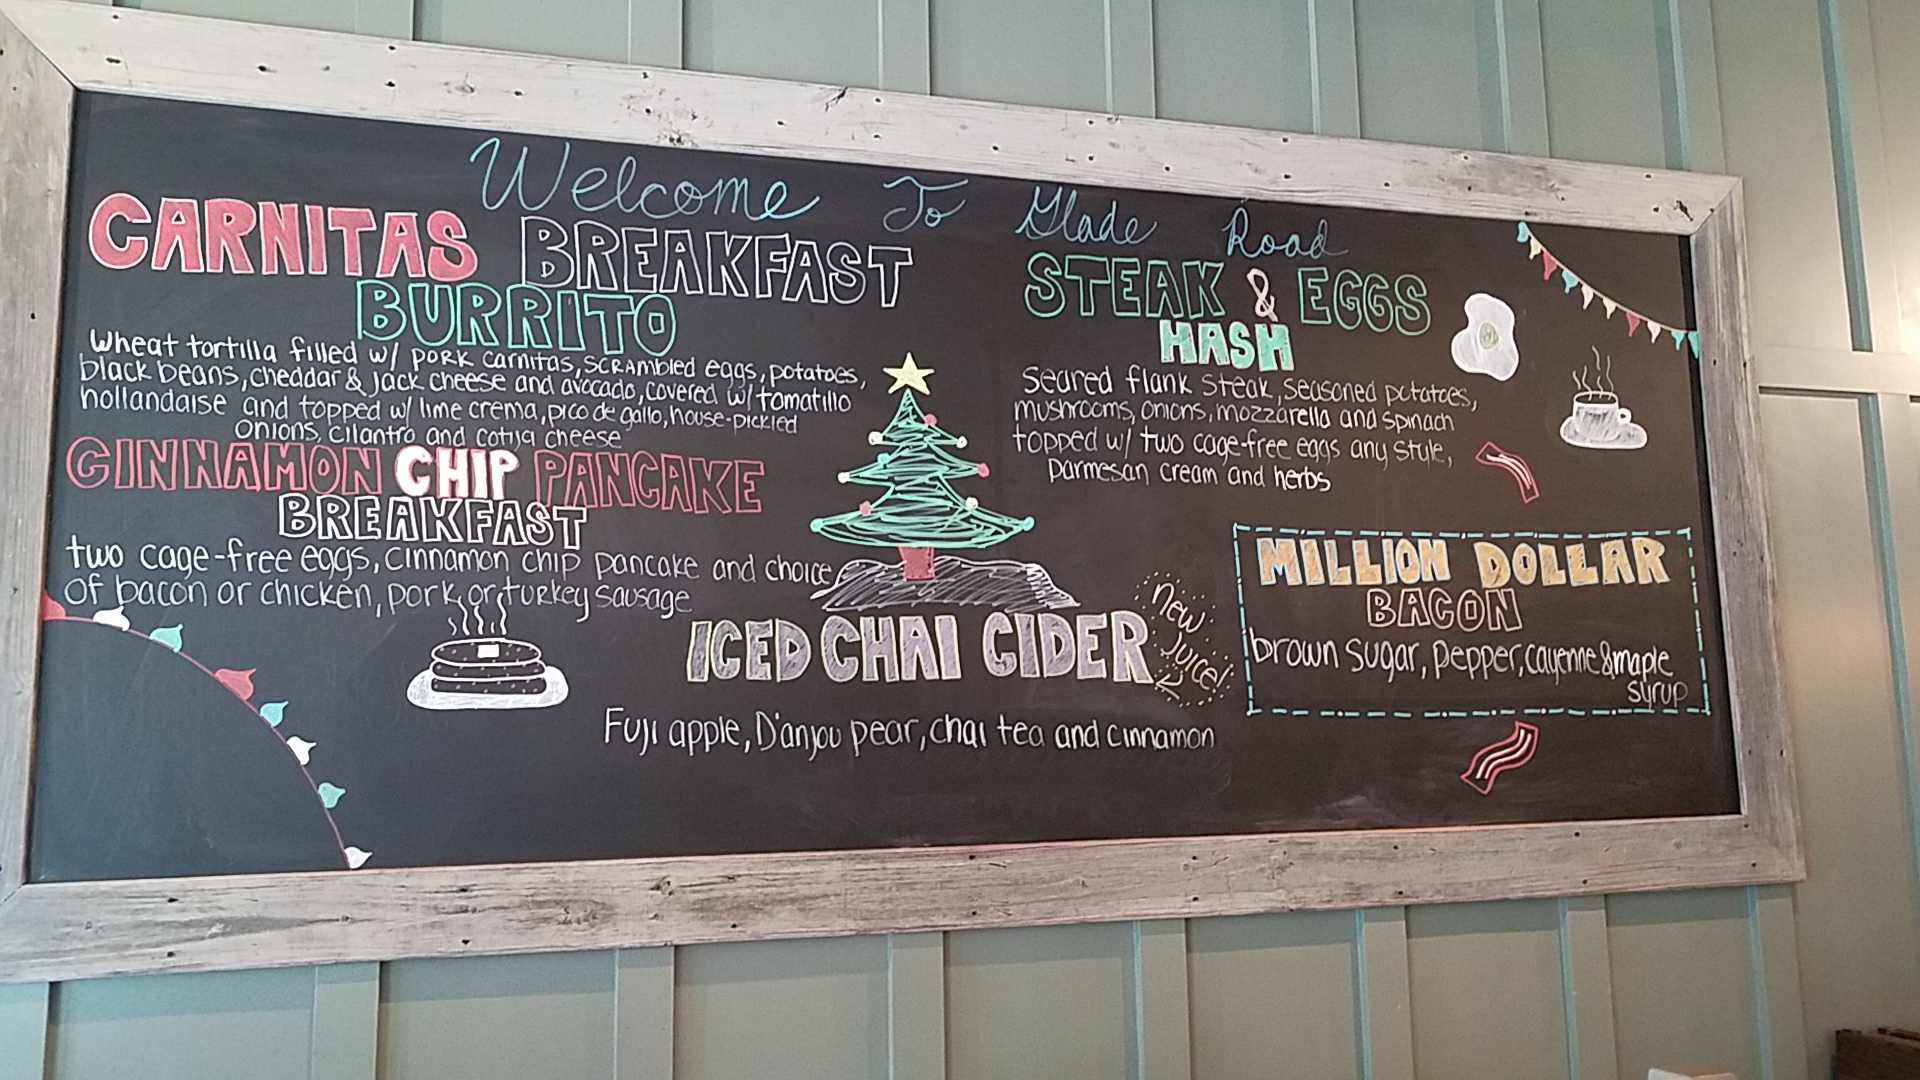 Welcome To Glade Road
CARNITAS BREAKFAST
BURRITO
Wheat tortilla filled w/ pork carnitas, scrambled eggs, potatoes,
black beans, cheddar & jack cheese and avocado, covered w/ tomatillo
hollandaise and topped w/ lime crema, pico de gallo, house-pickled
onions, cilantro and cotija cheese
CINNAMON CHIP PANCAKE
BREAKFAST
two cage-free eggs, cinnamon chip pancake and choice
of bacon or chicken, pork, or turkey sausage
STEAK & EGGS
HASH
Seared flank steak, seasoned potatoes,
mushrooms, onions, mozzarella and spinach
topped w/ two cage-free eggs any style,
parmesan cream and herbs
MILLION DOLLAR
BACON
brown sugar, pepper, cayenne & maple
syrup
ICED CHAI CIDER
New
Juice!
Fuji apple, D'anjou pear, chai tea and cinnamon